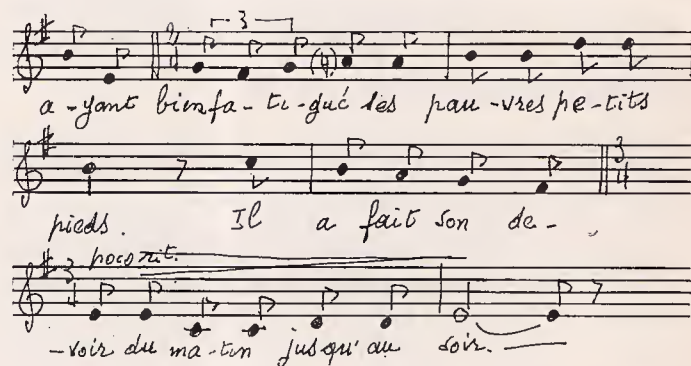 3
2 4 (4)
a-yant bien fa-ti-gué les pau-vres pe-tits
3 4
pieds. Il a fait son de-
poco rit.
3 4
-voir du ma-tin jusqu'au soir.